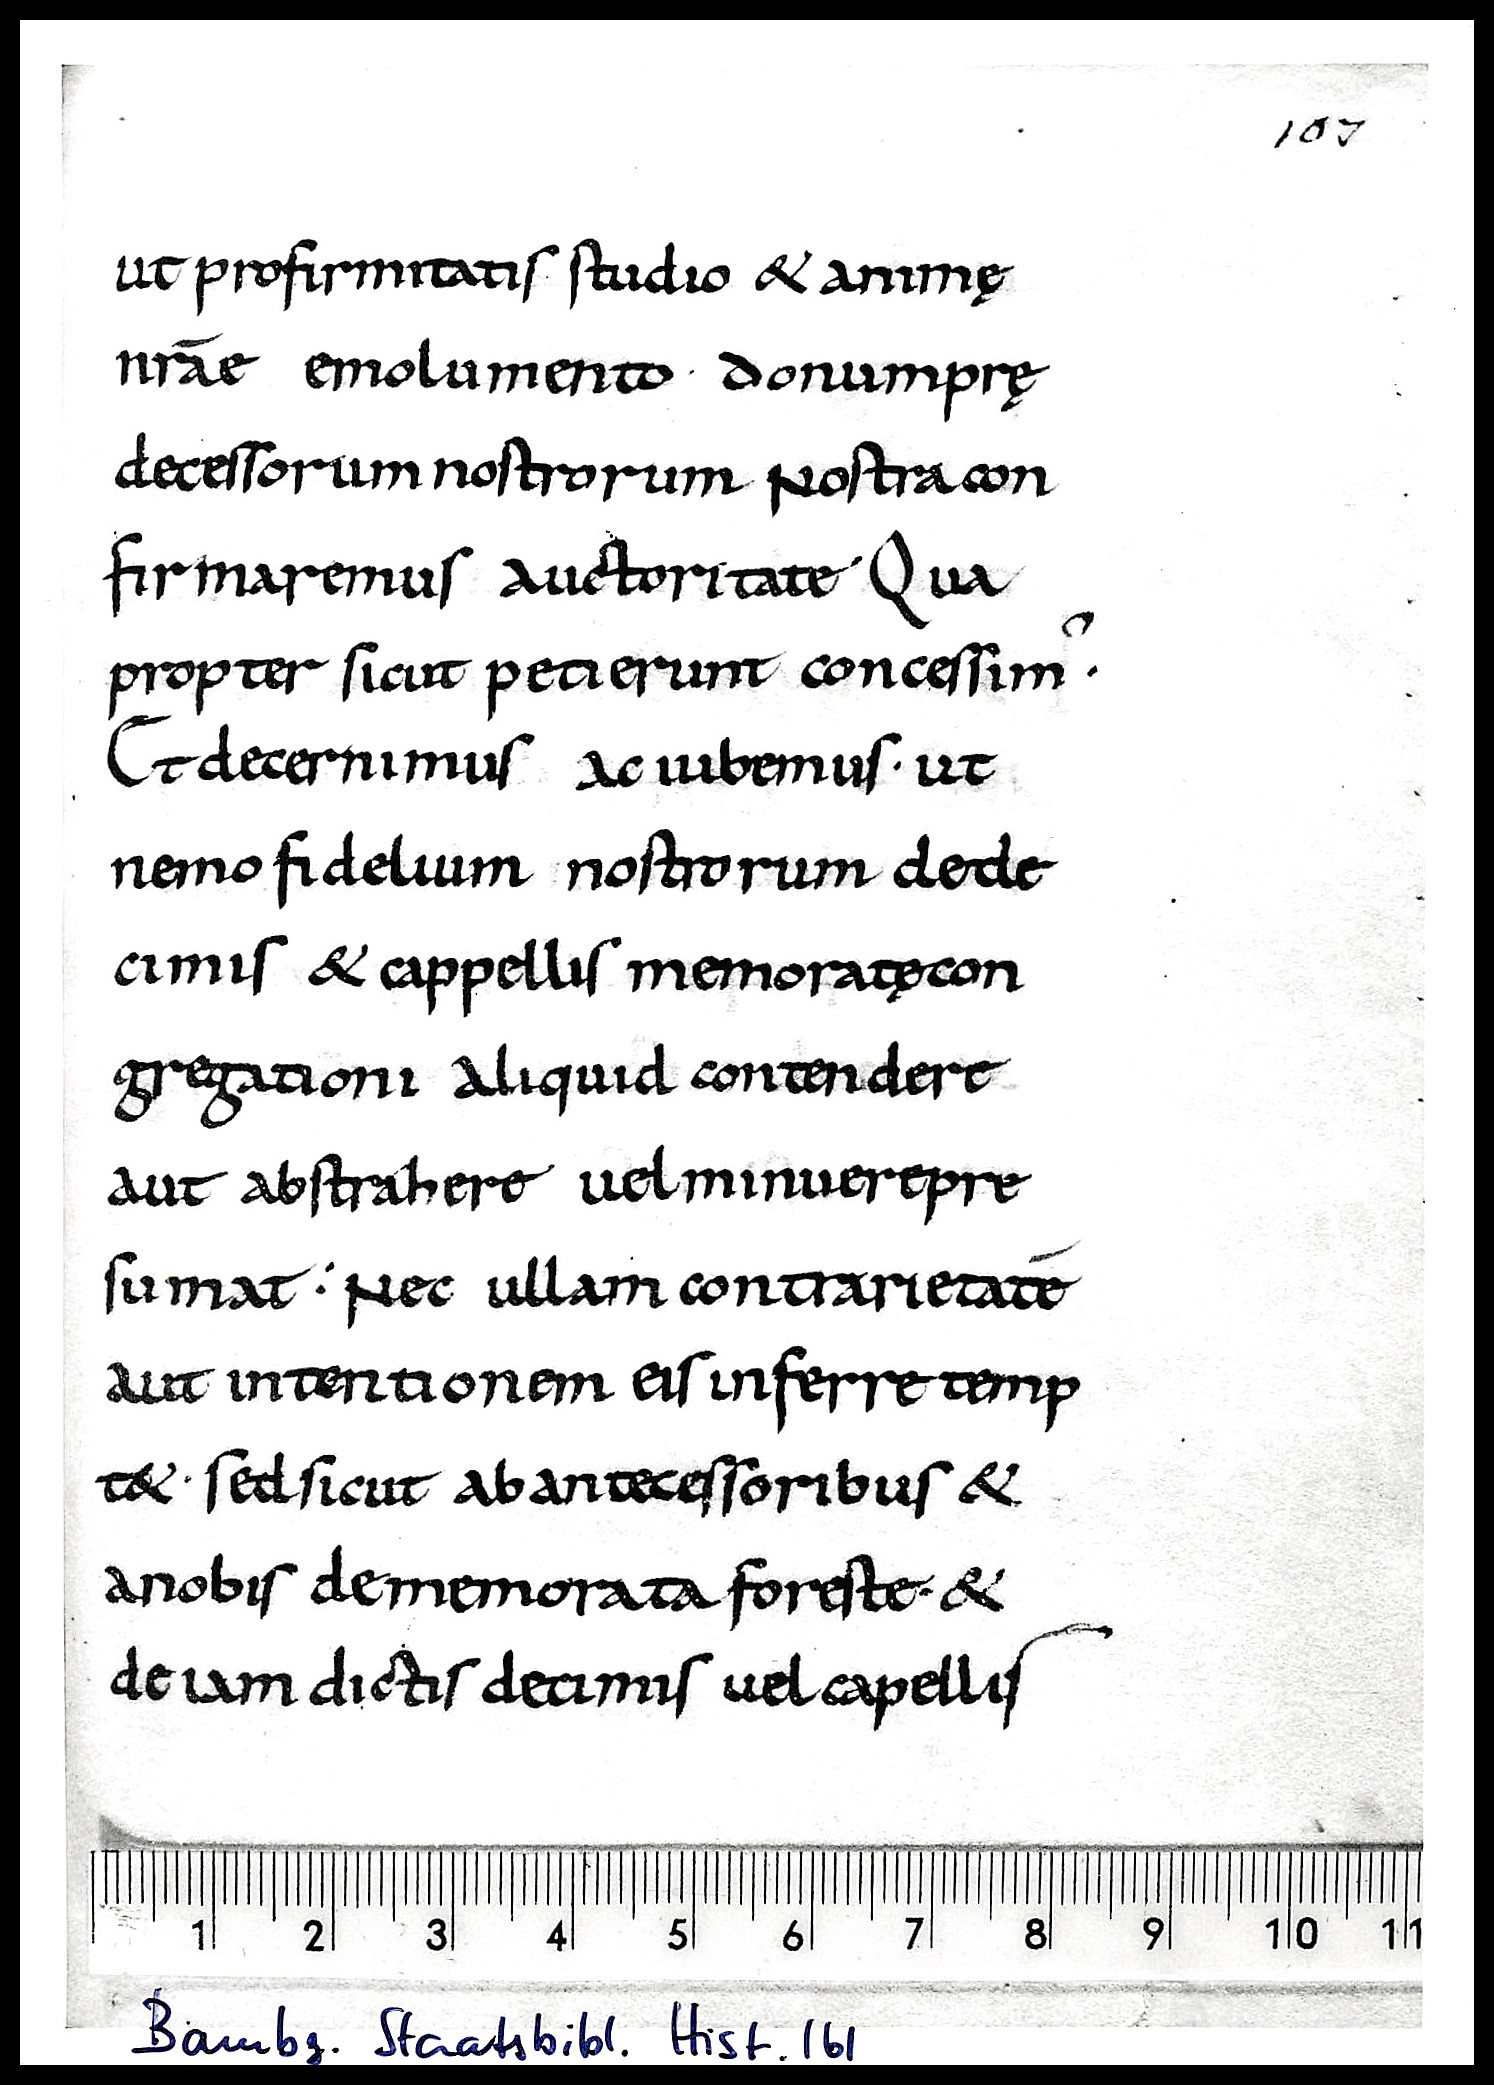 107
ut profirmitatis studio & animę
nrāe emolumento · donumprę
decessorum nostrorum Nostra con
firmaremus auctoritate · Qua
propter sicut petierunt concessim᾿ ·
Et decernimus ac iubemus · ut
nemo fidelium nostrorum dede
cimis & cappellis memoratę con
gregationi aliquid contendere
aut abstrahere uel minuere pre
sumat : Nec ullam contrarietatē
aut intentionem eis inferre temp
t& · sed sicut ab antecessoribus &
anobis dememorata foreste · &
de iam dictis decimis uel capellis
1 2 3 4 5 6 7 8 9 10 11
Bambg. Staatsbibl. Hist. 161